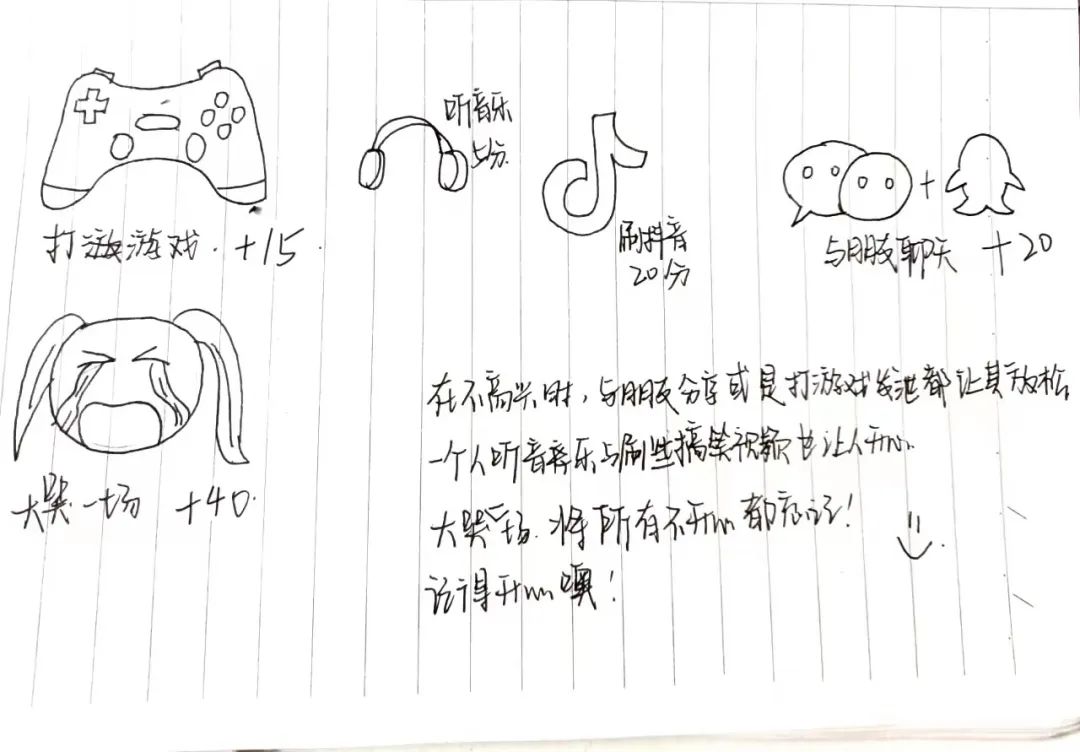 打游游戏. +15.
听音乐
5分.
刷抖音
20分
与朋友聊天 +20
大哭一场 +40.
在不高兴时,与朋友分享或是打游戏发泄都让其放松
一个人听音音乐与刷些搞笑视频也让人开心.
大哭一场.将所有不开心都忘记!
记得开心噢!